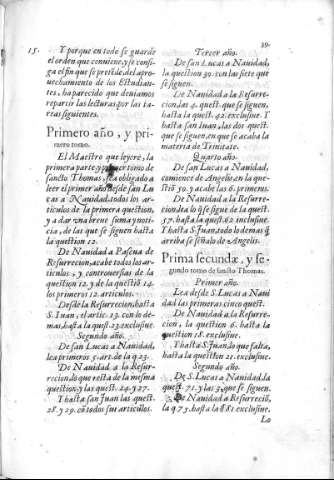 39.
15. Y porque en todo se guarde
el orden que conuiene, y se consi-
ga el fin que se prete͂de, del apro-
uechamiento de los Estudian-
tes, ha parecido que deuiamos
repartir las lecturas por las ta-
reas siguientes.
Primero año, y pri-
mero tomo.
El Maestro que leyere, la
primera parte y primer tomo de
sancto Thomas, sea obligado a
leer el primer año desde san Lu
cas a Nauidad, todos los ar-
ticulos de la primera question,
y a dar una breue summa y noti-
cia, de las que se siguen hasta
la question 12.
De Nauidad a Pascua de
Resurrecion, acabe todos los ar-
ticulos, y controuersias de la
question 12. y de la questio͂ 14.
los primeros 12. articulos.
Desde la Resurrecion, hasta
S. Iuan, el artic. 13. con lo de-
mas, hasta la quest. 23. exclusiue.
Segundo año.
De san Lucas a Nauidad,
lea primeros 5. art. de la q. 23.
De Nauidad a la Resur-
recion, lo que resta de la mesma
question, y las quest. 24. y 27.
Y hasta san Iuan las quest.
28. y 29. co͂ todos sus articulos.
Tercer año.
De san Lucas a Nauidad,
la question 30. con las siete que
se siguen.
De Nauidad a la Resurre-
cion, las 4. quest. que se siguen,
hasta la quest. 42. exclusiue. Y
hasta san Iuan, las dos quest.
que se siguen, en que se acaba la
materia de Trinitate.
Quarto año.
De san Lucas a Nauidad,
comience de Angelis, en la que-
stio͂ 50. y acabe las 6. primeras.
De Nauidad a la Resurre-
cion, lea lo q͂ se sigue de la quest.
57. hasta la quest. 62. exclusiue.
Y hasta S. Iuan, todo lo demas q͂
arriba se señalo de Angelis.
Prima secundæ, y se-
gundo tomo de sancto Thomas.
Primer año.
Lea desde S. Lucas a Naui
dad las primeras cinco quest.
De Nauidad a la Resurre-
cion, la question 6. hasta la
question 18. exclusiue.
Y hasta S. Iuan, lo que falta,
hasta la question 21. exclusiue.
Segundo año.
De S. Lucas a Nauidad, la
quest. 71. y las 3. que se siguen.
De Nauidad a Resurrecio͂,
la q. 75. hasta la q. 81. exclusiue.
Lo